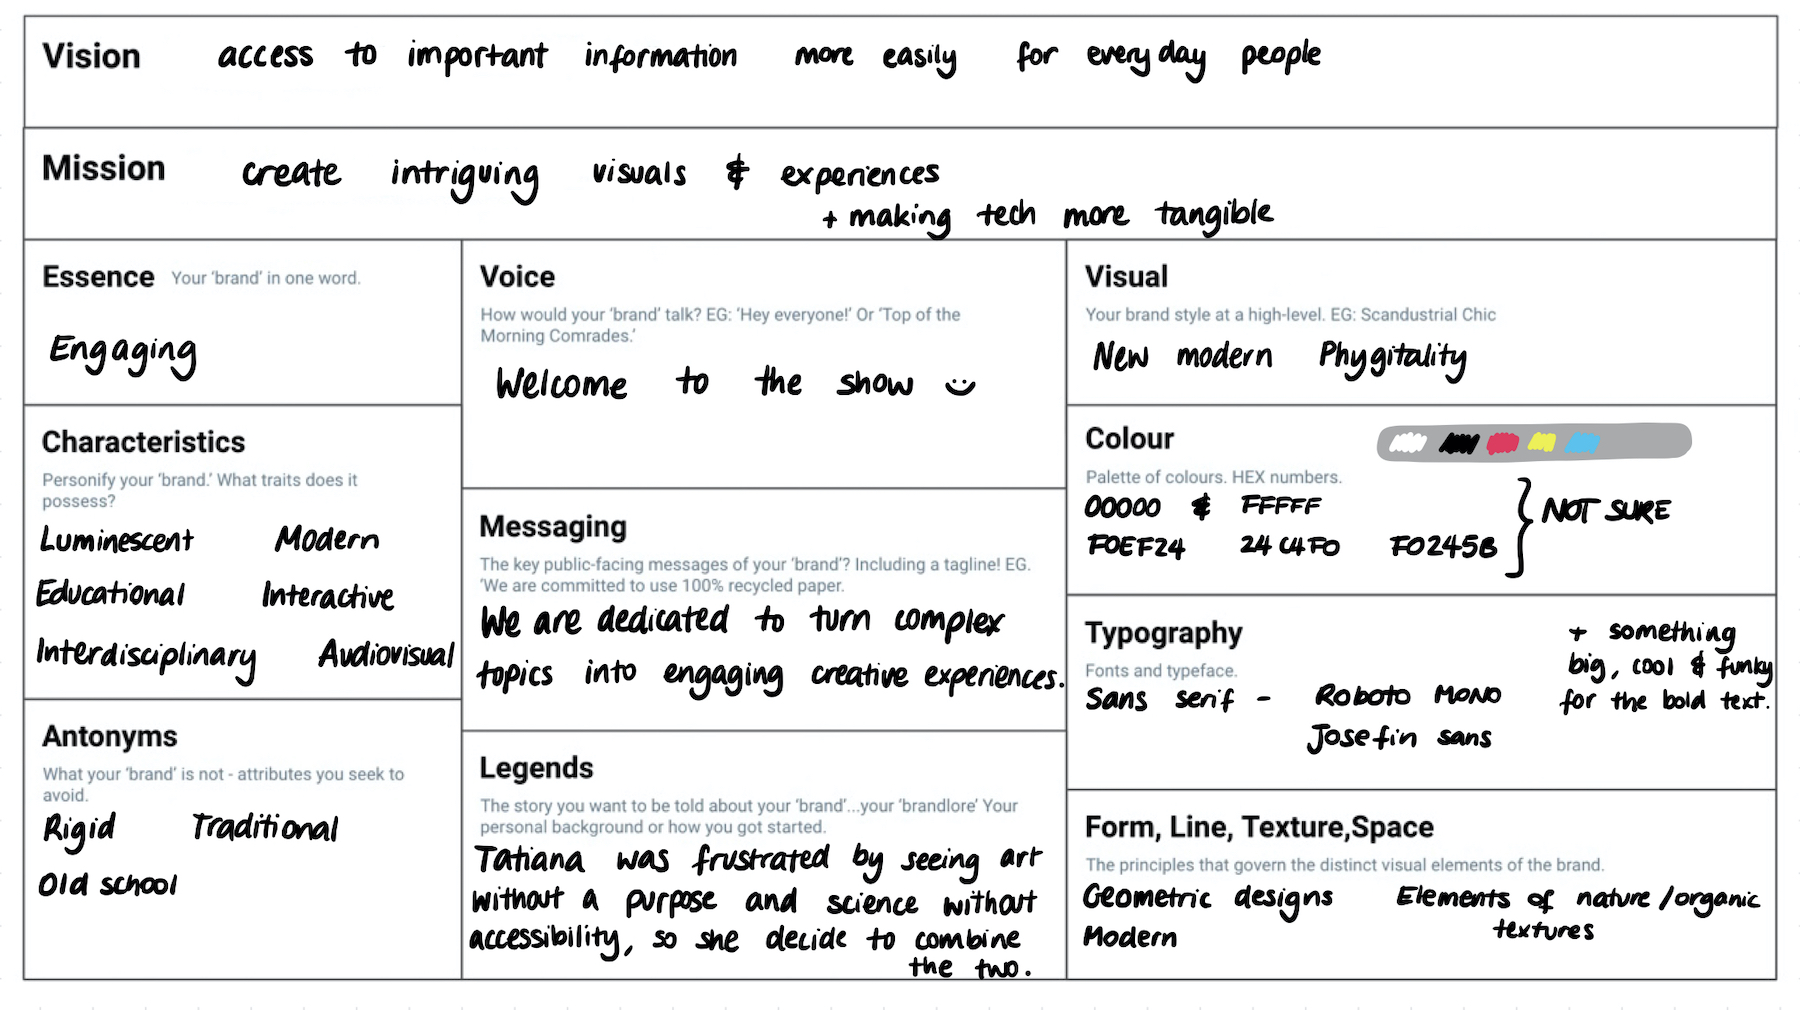 Vision access to important information more easily for everyday people
Mission create intriguing visuals & experiences
+ making tech more tangible
Essence Your 'brand' in one word.
Engaging
Characteristics
Personify your 'brand.' What traits does it
possess?
Luminescent Modern
Educational Interactive
Interdisciplinary Audiovisual
Antonyms
What your 'brand' is not - attributes you seek to
avoid.
Rigid Traditional
Old school
Voice
How would your 'brand' talk? EG: 'Hey everyone!' Or 'Top of the
Morning Comrades.'
Welcome to the show
Messaging
The key public-facing messages of your 'brand'? Including a tagline! EG.
'We are committed to use 100% recycled paper.
We are dedicated to turn complex
topics into engaging creative experiences.
Legends
The story you want to be told about your 'brand'...your 'brandlore' Your
personal background or how you got started.
Tatiana was frustrated by seeing art
without a purpose and science without
accessibility, so she decide to combine
the two.
Visual
Your brand style at a high-level. EG: Scandustrial Chic
New modern Phygitality
Colour
Palette of colours. HEX numbers.
00000 & FFFFF
F0EF24 24C4F0 F0245B
NOT SURE
Typography
Fonts and typeface.
Sans serif - Roboto Mono
Josefin sans
+ something
big, cool & funky
for the bold text.
Form, Line, Texture,Space
The principles that govern the distinct visual elements of the brand.
Geometric designs Elements of nature/organic
textures
Modern